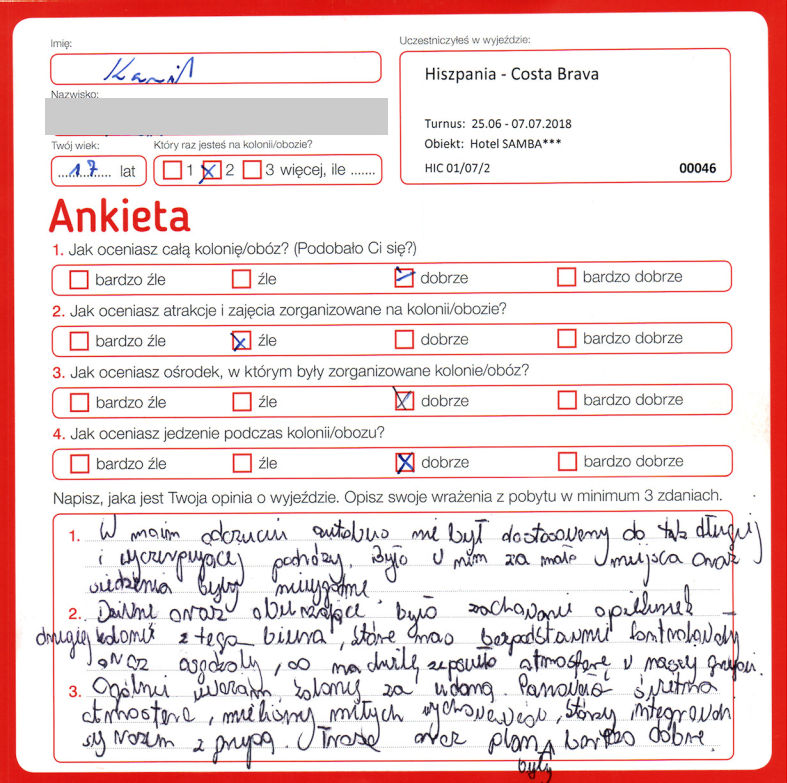 Imię:
Kamil
Uczestniczyłeś w wyjeździe:
Hiszpania - Costa Brava
Nazwisko:
Turnus: 25.06 - 07.07.2018
Obiekt: Hotel SAMBA***
HIC 01/07/2
00046
Twój wiek:
Który raz jesteś na kolonii/obozie?
17 lat
1 2 3 więcej, ile .......
Ankieta
1. Jak oceniasz całą kolonię/obóz? (Podobało Ci się?)
bardzo źle źle dobrze bardzo dobrze
2. Jak oceniasz atrakcje i zajęcia zorganizowane na kolonii/obozie?
bardzo źle źle dobrze bardzo dobrze
3. Jak oceniasz ośrodek, w którym były zorganizowane kolonie/obóz?
bardzo źle źle dobrze bardzo dobrze
4. Jak oceniasz jedzenie podczas kolonii/obozu?
bardzo źle źle dobrze bardzo dobrze
Napisz, jaka jest Twoja opinia o wyjeździe. Opisz swoje wrażenia z pobytu w minimum 3 zdaniach.
1. W moim odczuciu autobus nie był dostosowany do tak długiej
i wyczerpującej podróży. Było w nim za mało miejsca oraz
siedzenia były niewygodne.
2. Dziwne oraz oburzające było zachowanie opiekunek
drugiej kolonii z tego biura, które nas bezpodstawnie kontrolowały
oraz osądzały, co na chwilę zepsuło atmosferę w naszej grupie.
3. Ogólnie uważam kolonię za udaną. Panowała świetna
atmosfera, mieliśmy miłych wychowawców, którzy integrowali
się razem z grupą. Trasa oraz plan były bardzo dobre.